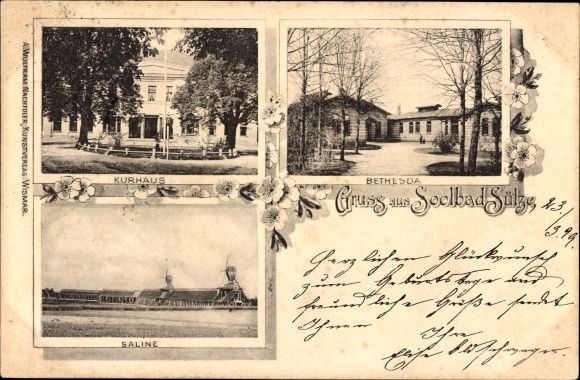 A. Wultram Nachf. Dier, Kunstverlag Wismar.
KURHAUS
BETHESDA
Gruss aus Soolbad Sülze
23/3.99.
SALINE
Herzlichen Glückwunsch
zum Geburtstage und
freundliche Grüße sendet
Ihnen Ihre
Elise